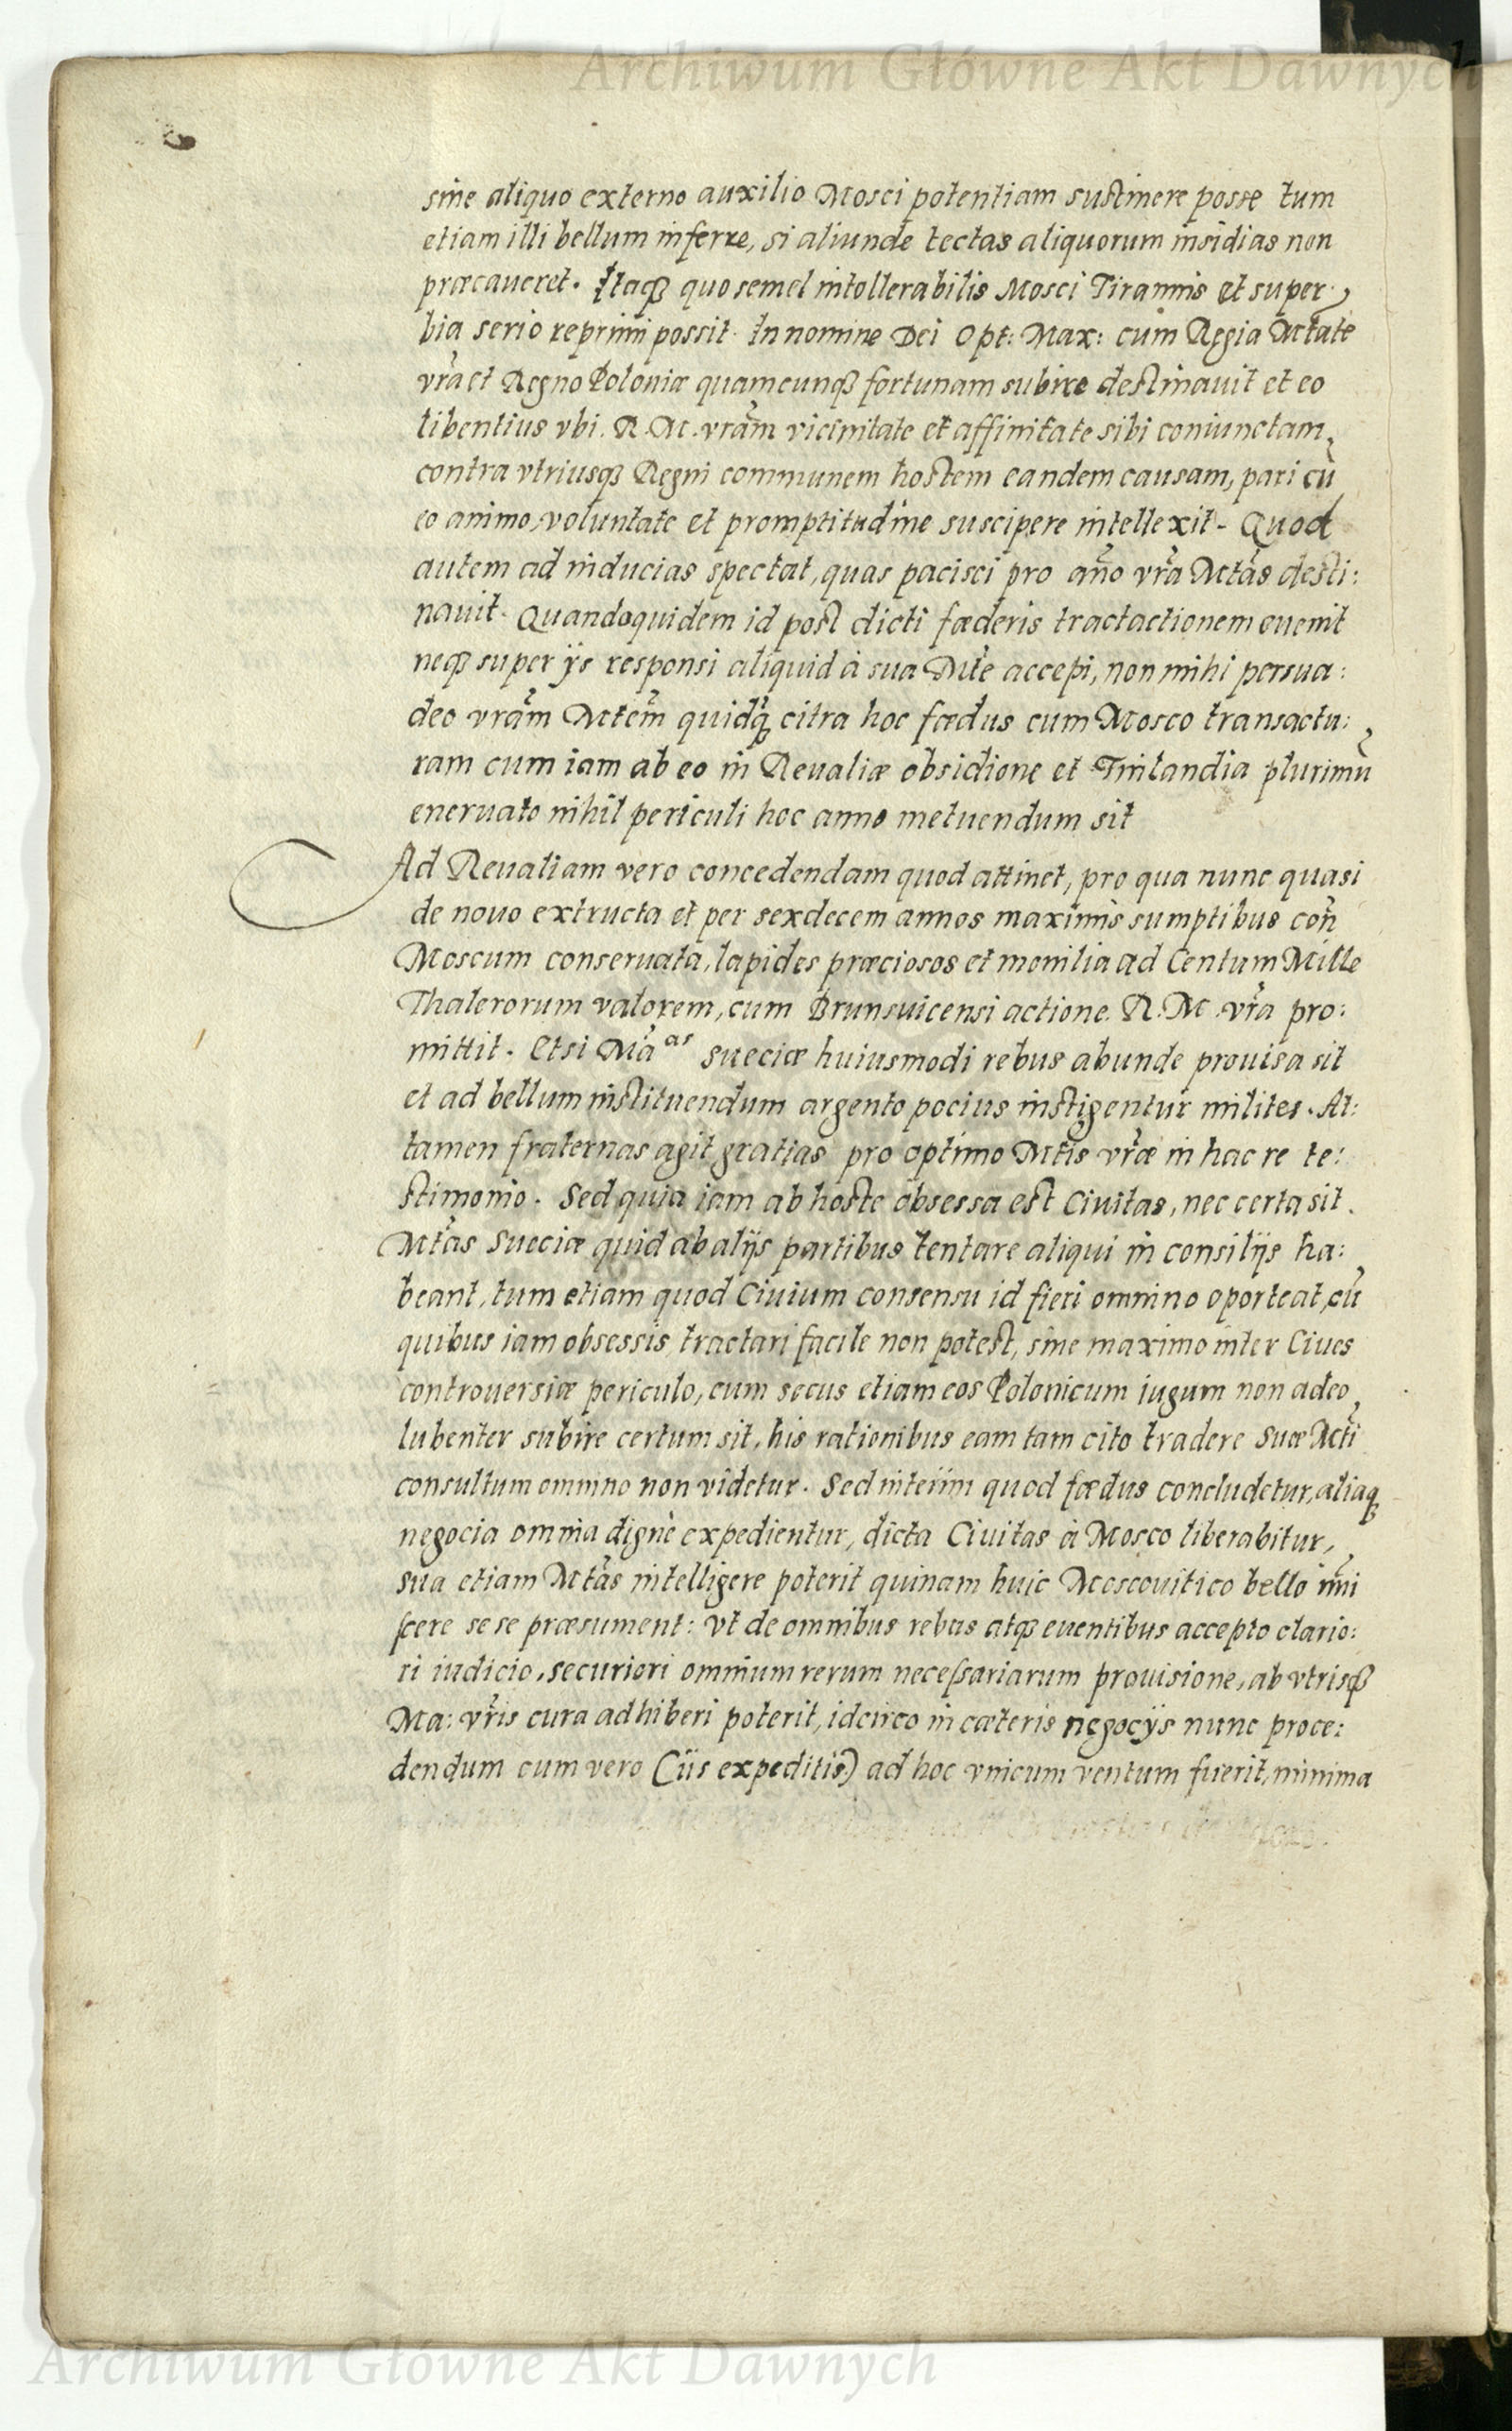 Archiwum Główne Akt Dawnych
sine aliquo externo auxilio Mosci potentiam sustinere posse tum
etiam illi bellum inferre, si aliunde tectas aliquorum insidias non
præcaueret. Itaqꝫ quo semel intollerabilis Mosci Tirannis et super
bia serio reprimi possit. In nomine Dei Opt: Max: cum Regia Mtate
vr̃a et Regno Poloniæ quamcunqꝫ fortunam subire destinauit et eo
libentius vbi. R. M. vrãm vicinitate et affinitate sibi coniunctam
contra vtriusqꝫ Regni communem hostem eandem causam, pari cũ
eo animo, voluntate et promptitudine suscipere intellexit. Quod
autem ad inducias spectat, quas pacisci pro añño vr̃a Mtãs desti:
nauit. Quandoquidem id post dicti fæderis tractactionem euenit
neqꝫ super ijs responsi aliquid à sua Mt̃e accepi, non mihi persua:
deo vrãm Mtẽm quidq̃ꝫ citra hoc fœdus cum Mosco transactu:
ram cum iam ab eo in Reualiæ obsidione et Finlandia plurimũ
eneruato nihil periculi hoc anno metuendum sit
Ad Reualiam vero concedendam quod attinet, pro qua nunc quasi
de nouo extructa et per sexdecem annos maximis sumptibus coñ
Moscum conseruata, lapides præciosos et monilia ad Centum Mille
Thalerorum valorem, cum Brunsuicensi actione. R. M. vr̃a pro:
mittit. Etsi Mãas sueciæ huiusmodi rebus abunde prouisa sit
et ad bellum instituendum argento pocius instigentur milites. At:
tamen fraternas agit gratias pro optimo Mtis vr̃æ in hac re te:
stimonio. Sed quia iam ab hoste obsessa est Ciuitas, nec certa sit.
Mtãs Sueciæ quid ab alijs partibus tentare aliqui in consilijs ha:
beant, tum etiam quod Ciuium consensu id fieri omnino oporteat, cũ
quibus iam obsessis tractari facile non potest, sine maximo inter Ciues
controuersiæ periculo, cum secus etiam eos Polonicum iugum non adeo
lubenter subire certum sit, his rationibus eam tam cito tradere Suæ Mt̃i
consultum omnino non videtur. Sed interim quod fœdus concludetur, aliaqꝫ
negocia omnia dignè expedientur, dicta Ciuitas à Mosco liberabitur,
sua etiam Mtãs intelligere poterit quinam huic Moscouitico bello im̃i
scere sese præsument: vt de omnibus rebus atqꝫ euentibus accepto clario:
ri iudicio, securiori omnium rerum necessariarum prouisione, ab vtrisqꝫ
Ma: vr̃is cura adhiberi poterit, idcirco in cæteris negocijs nunc proce:
dendum cum vero (iis expeditis) ad hoc vnicum ventum fuerit, minima
Archiwum Główne Akt Dawnych